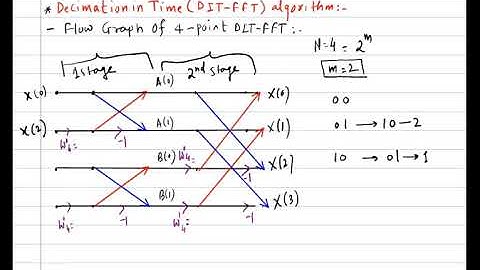 * Decimation in Time (DIT-FFT) algorithm:-
- Flow Graph of 4-point DIT-FFT:-
N=4 = 2^m
m=2
1 stage
2nd stage
x(0)
A(0)
X(0)
00
x(2)
A(1)
X(1)
01 → 10-2
-1
B(0)
-1
X(2)
10 → 01 → 1
B(1)
X(3)
-1
-1